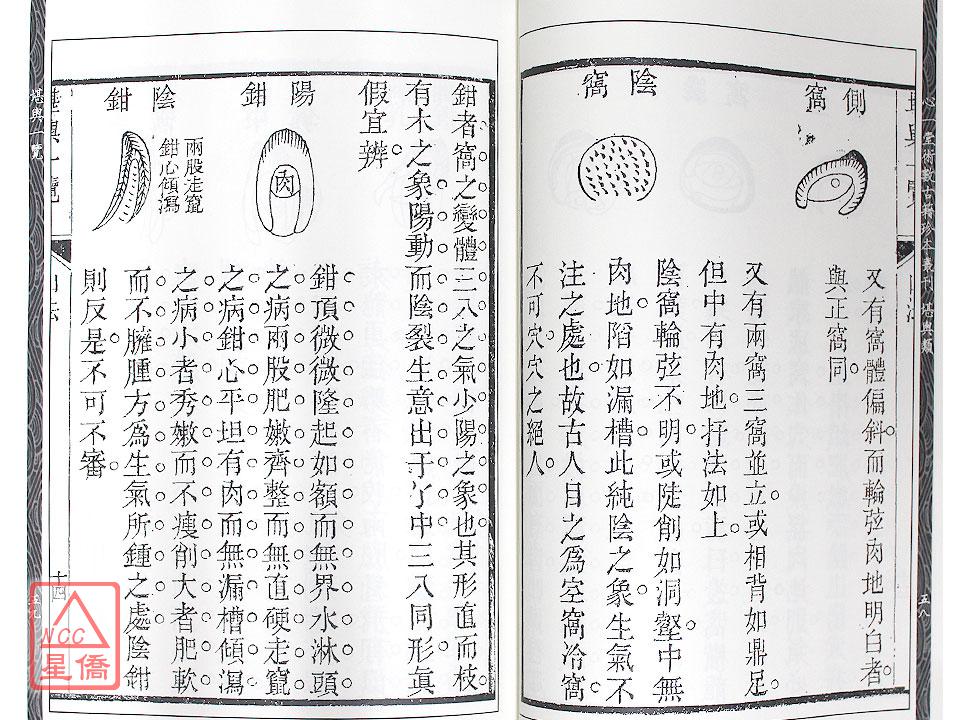 心一堂術數古籍珍本叢刊 堪輿類
五八
側窩
又有窩體偏斜而輪弦肉地明白者
與正窩同
又有兩窩三窩並立或相背如鼎足
但中有肉地扦法如上
陰窩
陰窩輪弦不明或陡削如洞壑中無
肉地陷如漏槽此純陰之象生氣不
注之處也故古人目之爲空窩冷窩
不可穴穴之絕人
鉗者窩之變體三八之氣少陽之象也其形直而枝
有木之象陽動而陰裂生意出于个中三八同形眞
假宜辨
陽鉗
肉
鉗頂微微隆起如額而無界水淋頭
之病兩股肥嫩齊整而無直硬走竄
之病鉗心平坦有肉而無漏槽傾瀉
之病小者秀嫩而不瘦削大者肥軟
而不臃腫方爲生氣所鍾之處陰鉗
則反是不可不審
陰鉗
兩股走竄
鉗心傾瀉
堪輿一覽
十四
堪輿一覽
五九
NCC
星僑